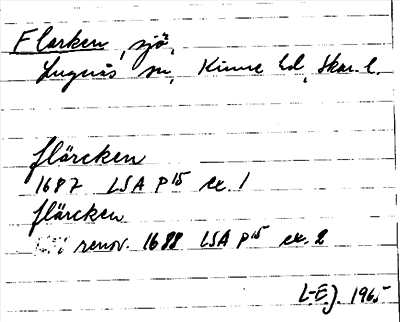 Flarken, sjö,
Lugnås sn, Kinne hd, Skar. l.
flärcken
1687 LSA P 15 ex. 1
flärcken
renov. 1688 LSA P 15 ex. 2
L-E.J. 1965